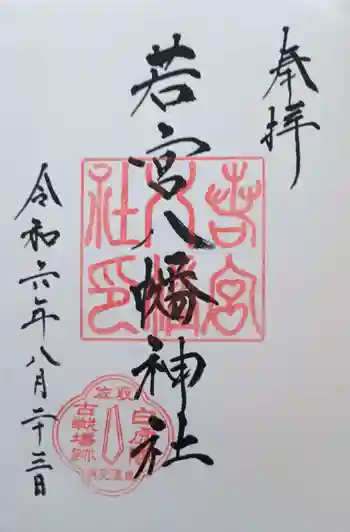 奉拝
若宮八幡神社
令和六年八月二十三日
若宮
八幡
社印
古戦場跡